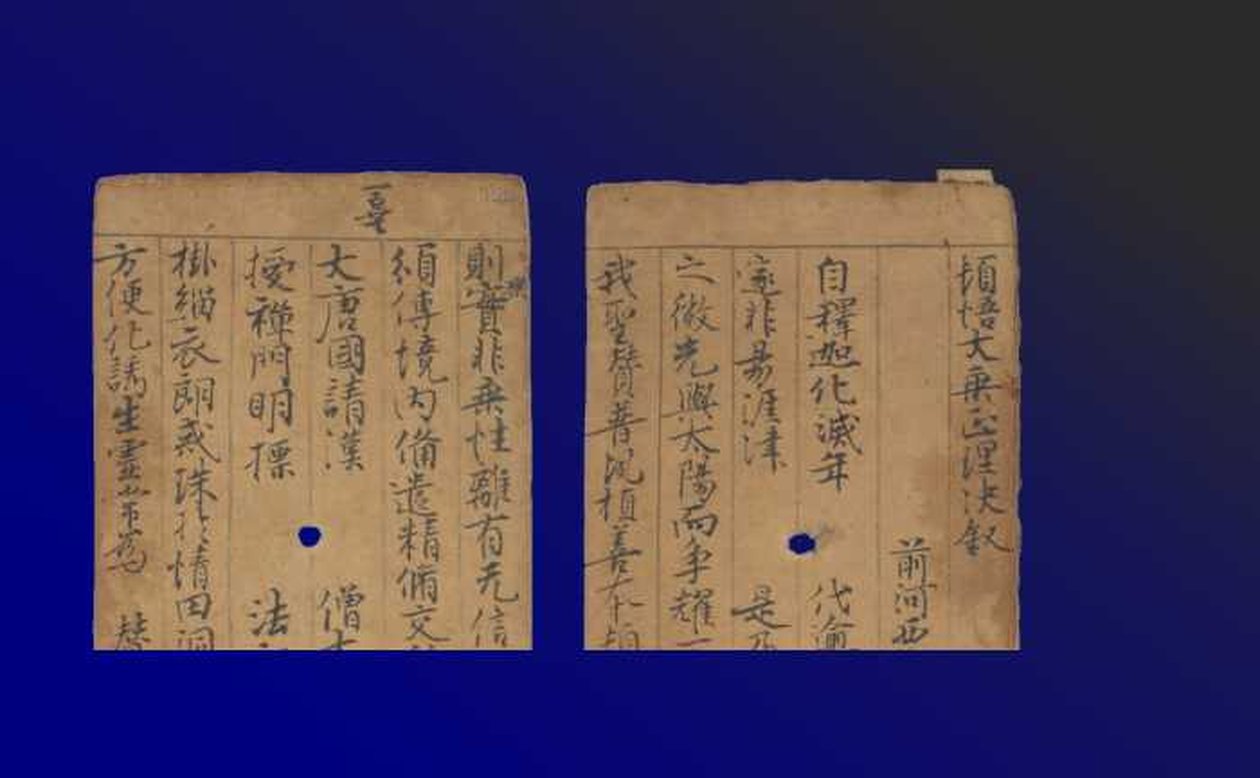 頓悟大乗正理決叙
前河西
自釋迦化滅年 代逾
邃非易涯津 是乃
之微光與太陽而爭耀
我聖賛普夙植善本頓
喜
則實非乗性離有无信
頒傳境內備遣精脩交
大唐國請漢 僧大
授禪門明摽 法
掛緇衣朗戒珠於情田洞
方便化誘生靈常為 賛